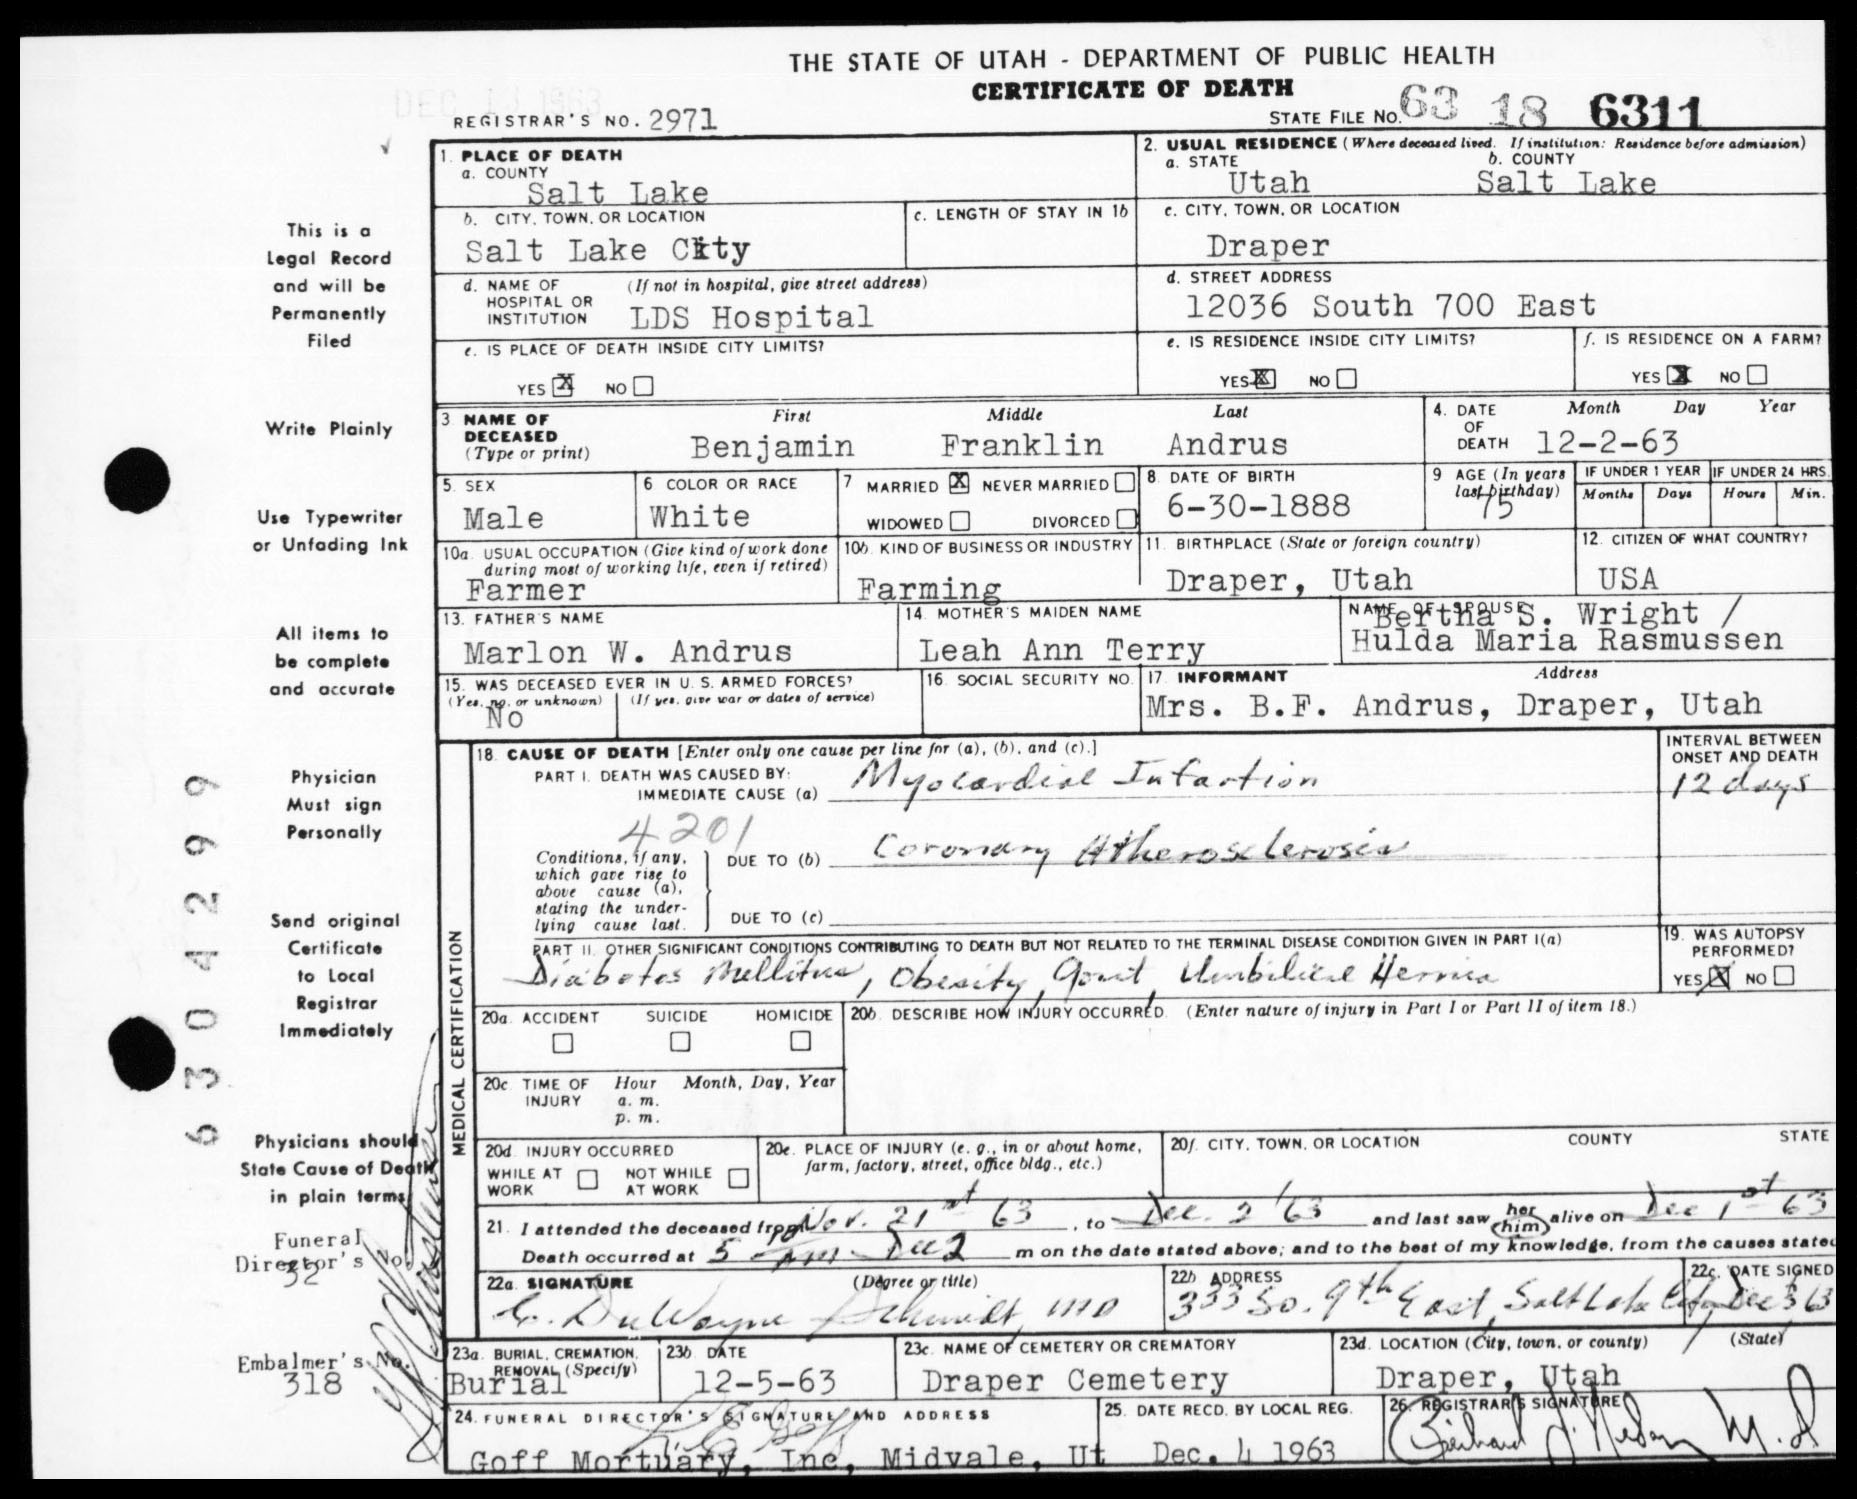 THE STATE OF UTAH - DEPARTMENT OF PUBLIC HEALTH
CERTIFICATE OF DEATH
DEC 13 1963
REGISTRAR'S NO. 2971
STATE FILE NO. 63 18 6311
1. PLACE OF DEATH
a. COUNTY
Salt Lake
2. USUAL RESIDENCE (Where deceased lived. If institution: Residence before admission)
a. STATE b. COUNTY
Utah Salt Lake
b. CITY, TOWN, OR LOCATION
Salt Lake City
c. LENGTH OF STAY IN 1b
c. CITY, TOWN, OR LOCATION
Draper
d. NAME OF HOSPITAL OR INSTITUTION (If not in hospital, give street address)
LDS Hospital
d. STREET ADDRESS
12036 South 700 East
e. IS PLACE OF DEATH INSIDE CITY LIMITS?
YES X NO
e. IS RESIDENCE INSIDE CITY LIMITS?
YES X NO
f. IS RESIDENCE ON A FARM?
YES X NO
3. NAME OF DECEASED (Type or print)
First Middle Last
Benjamin Franklin Andrus
4. DATE OF DEATH
Month Day Year
12-2-63
5. SEX
Male
6 COLOR OR RACE
White
7 MARRIED X NEVER MARRIED
WIDOWED DIVORCED
8. DATE OF BIRTH
6-30-1888
9 AGE (In years last birthday)
75
IF UNDER 1 YEAR
Months Days
IF UNDER 24 HRS.
Hours Min.
10a. USUAL OCCUPATION (Give kind of work done during most of working life, even if retired)
Farmer
10b. KIND OF BUSINESS OR INDUSTRY
Farming
11. BIRTHPLACE (State or foreign country)
Draper, Utah
12. CITIZEN OF WHAT COUNTRY?
USA
13. FATHER'S NAME
Marlon W. Andrus
14. MOTHER'S MAIDEN NAME
Leah Ann Terry
NAME OF SPOUSE
Bertha S. Wright /
Hulda Maria Rasmussen
15. WAS DECEASED EVER IN U. S. ARMED FORCES?
(Yes, no, or unknown) (If yes, give war or dates of service)
No
16. SOCIAL SECURITY NO.
17. INFORMANT Address
Mrs. B.F. Andrus, Draper, Utah
18. CAUSE OF DEATH [Enter only one cause per line for (a), (b), and (c).]
INTERVAL BETWEEN ONSET AND DEATH
PART I. DEATH WAS CAUSED BY:
IMMEDIATE CAUSE (a) Myocardial Infartion
12 days
4201
Conditions, if any, which gave rise to above cause (a), stating the under-lying cause last.
DUE TO (b) Coronary Atherosclerosis
DUE TO (c)
PART II. OTHER SIGNIFICANT CONDITIONS CONTRIBUTING TO DEATH BUT NOT RELATED TO THE TERMINAL DISEASE CONDITION GIVEN IN PART I(a)
Diabetes Mellitus, Obesity, Gout, Umbilical Hernia
19. WAS AUTOPSY PERFORMED?
YES X NO
MEDICAL CERTIFICATION
20a. ACCIDENT SUICIDE HOMICIDE
20b. DESCRIBE HOW INJURY OCCURRED. (Enter nature of injury in Part I or Part II of item 18.)
20c TIME OF INJURY
Hour Month, Day, Year
a. m.
p. m.
20d. INJURY OCCURRED
WHILE AT WORK NOT WHILE AT WORK
20e. PLACE OF INJURY (e. g., in or about home, farm, factory, street, office bldg., etc.)
20f. CITY, TOWN, OR LOCATION COUNTY STATE
21. I attended the deceased from Nov. 21st 63, to Dec. 2 '63 and last saw her him alive on Dec 1st 63
Death occurred at 5 Dec 2 m on the date stated above; and to the best of my knowledge, from the causes stated
22a. SIGNATURE (Degree or title)
C. DuWayne Schmidt, MD
22b ADDRESS
333 So. 9th East, Salt Lake City
22c. DATE SIGNED
Dec 3 63
23a. BURIAL, CREMATION, REMOVAL (Specify)
Burial
23b. DATE
12-5-63
23c. NAME OF CEMETERY OR CREMATORY
Draper Cemetery
23d. LOCATION (City, town, or county) (State)
Draper, Utah
24. FUNERAL DIRECTOR'S SIGNATURE AND ADDRESS
Goff Mortuary, Inc, Midvale, Ut
25. DATE RECD. BY LOCAL REG.
Dec. 4 1963
26. REGISTRAR'S SIGNATURE
M.D.
This is a
Legal Record
and will be
Permanently
Filed
Write Plainly
Use Typewriter
or Unfading Ink
All items to
be complete
and accurate
Physician
Must sign
Personally
Send original
Certificate
to Local
Registrar
Immediately
Physicians should
State Cause of Death
in plain terms
Funeral
Director's No.
32
Embalmer's No.
318
6304299